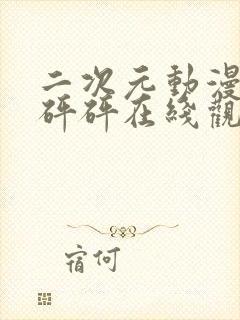 二次元動漫
砰砰在綫觀
宿何